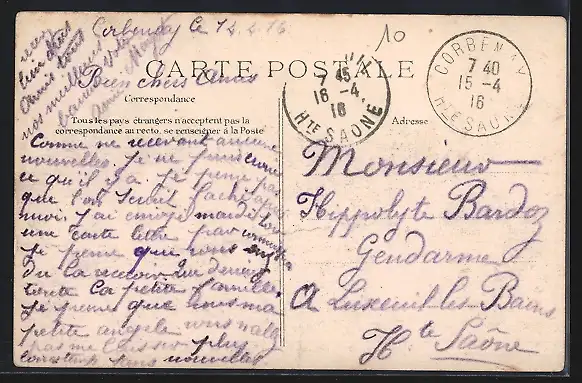 Corbenay le 14.4.16
10
CARTE POSTALE
Bien chers Amis
Correspondance
Tous les pays étrangers n'acceptent pas la
correspondance au recto, se renseigner à la Poste
Adresse
7 45
16 -4
16
Hte SAÔNE
CORBENAY
7 40
15 -4
16
Hte SAÔNE
Comme ne recevant aucune
nouvelles. Je ne
ce qu'il y a. Je pense pas
que l'on serait faché
moi. J'ai envoyé mardi
une carte lettre par
Je pense que vous
Du Que devient
toute la petite famille
Je pense que vous ma
petite angele vous
pas me laisser plus
longtemps sans nouvelles
recevez
bien chers
Amis tous
nos meilleures
Monsieur
Hippolyte Bardoz
Gendarme
A Luxeuil les Bains
Hte Saône